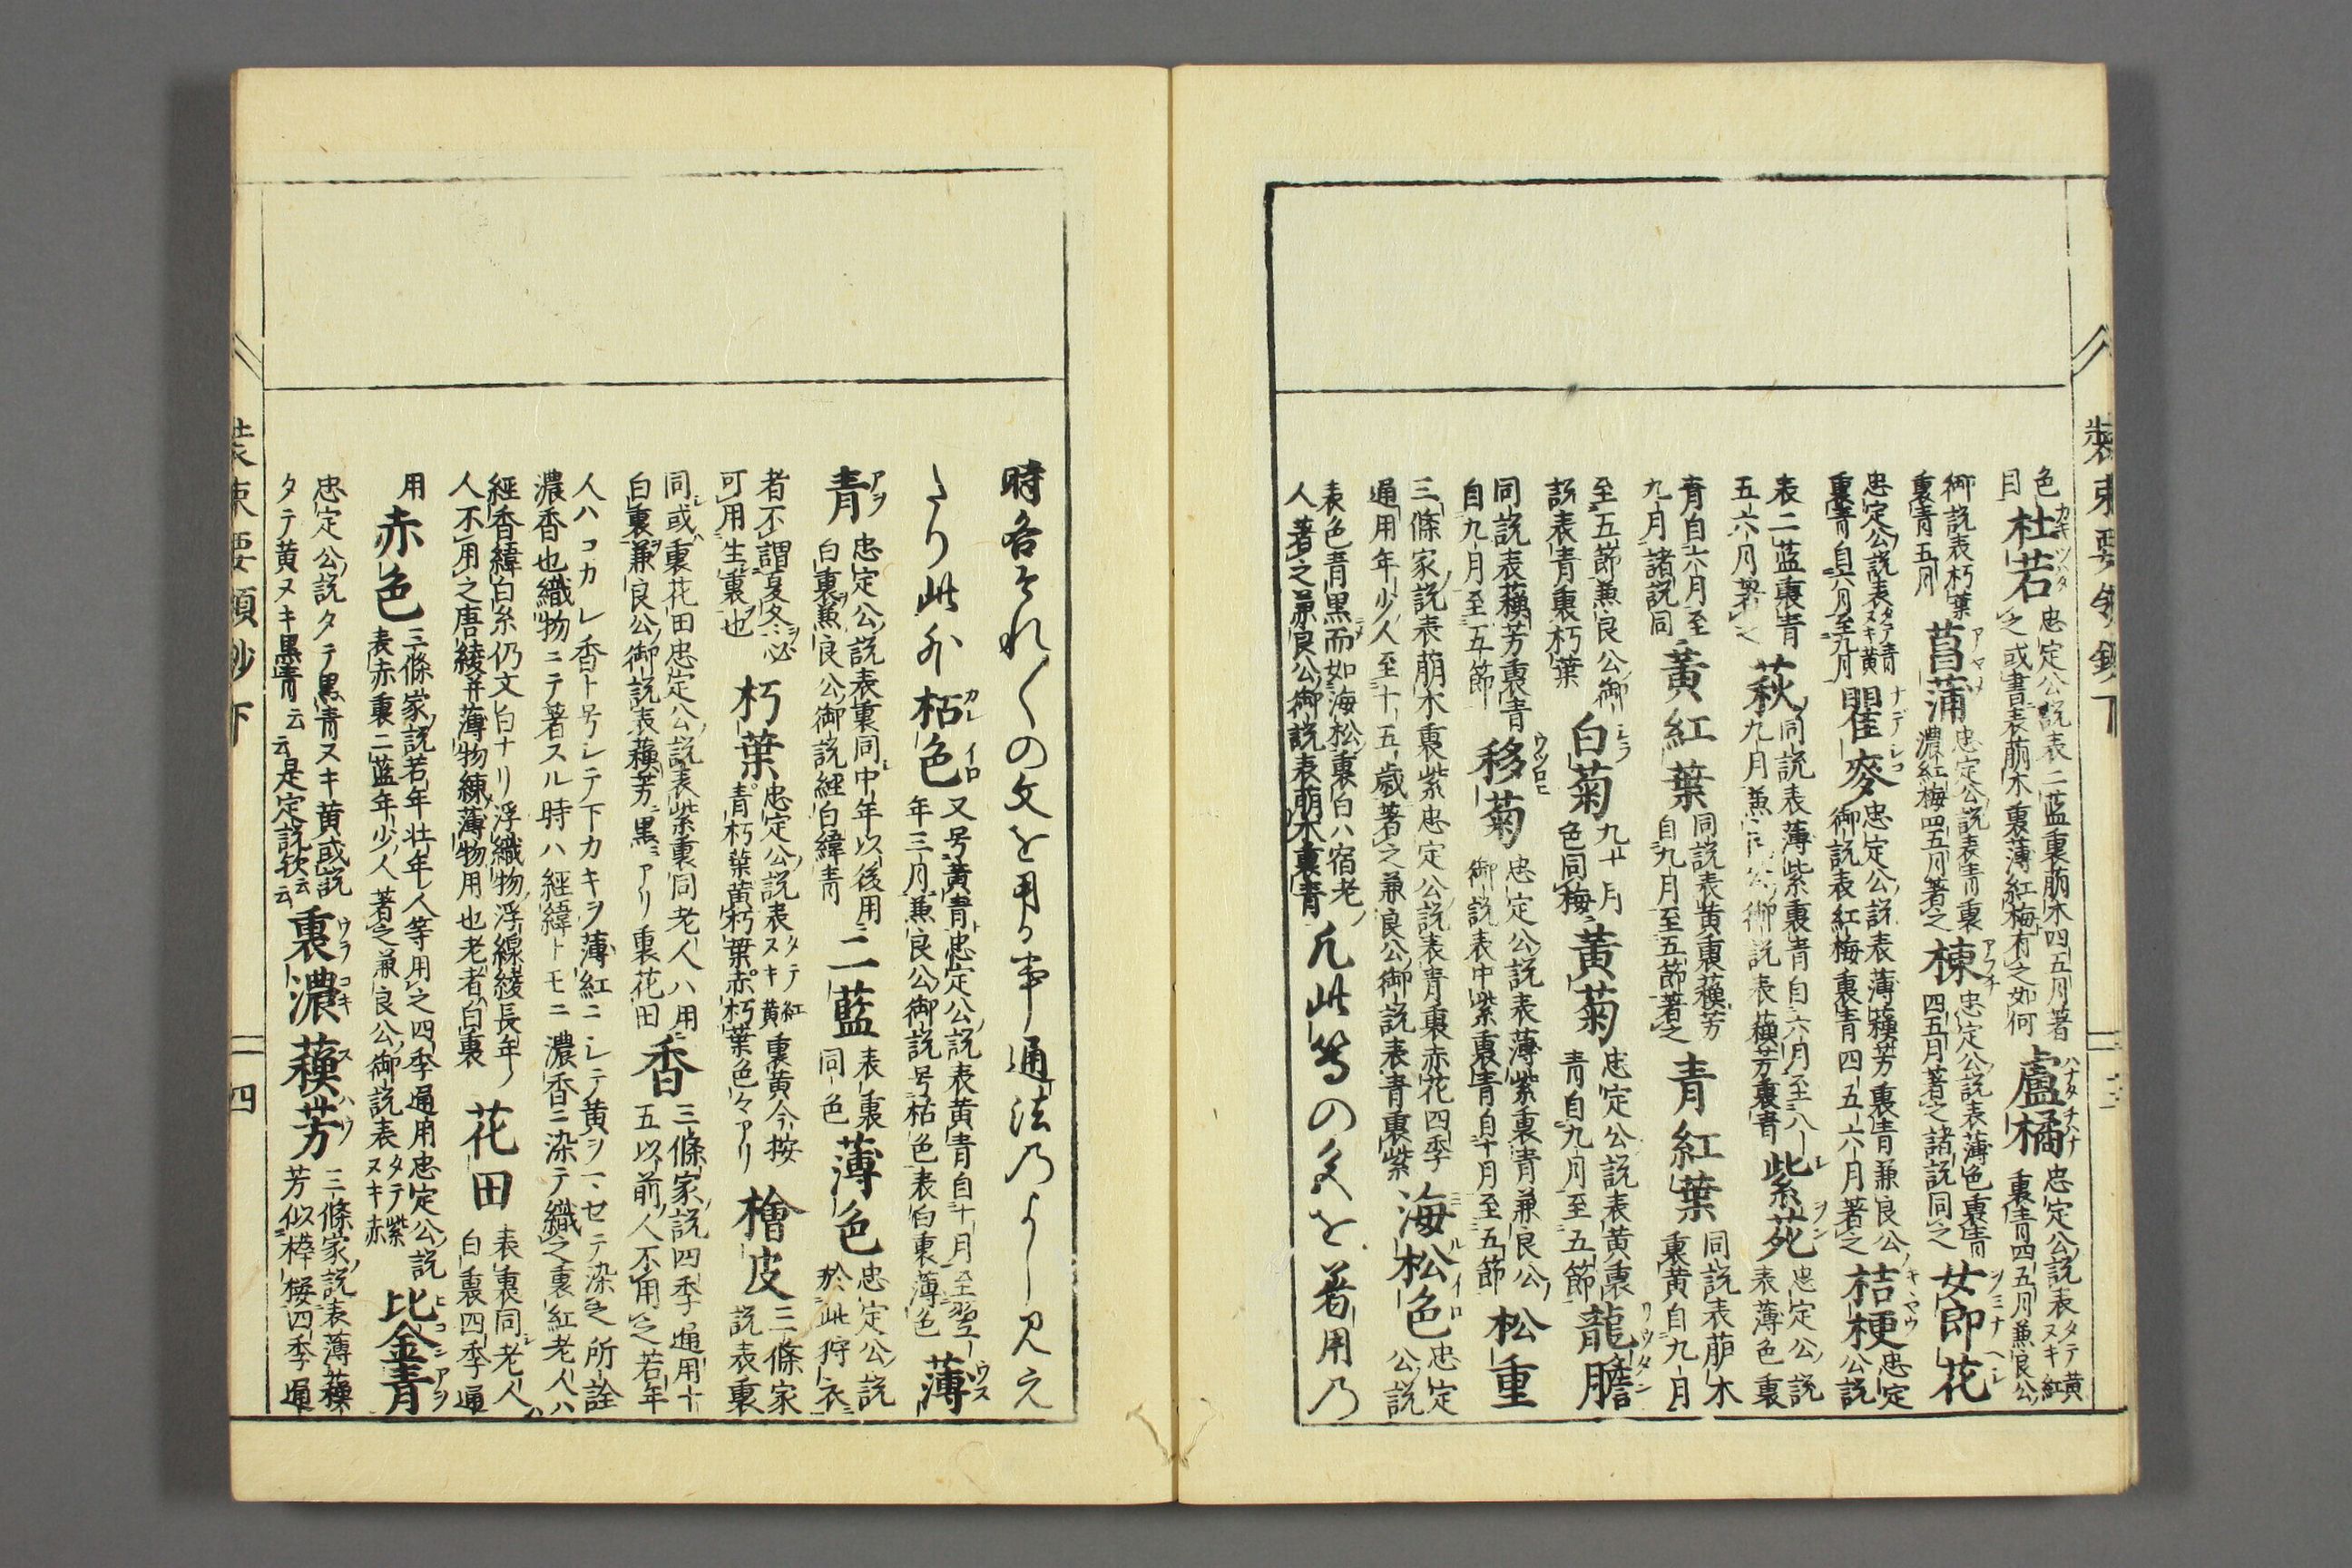 色目 杜若 忠定公説表二藍裏萠木四五月著之或書表萠木裏薄紅梅有之如何 盧橘 忠定公説表タテ黄ヌキ紅裏青四五月兼良公
御説表朽葉裏青五月 菖蒲 忠定公説表青裏濃紅梅四五月著之 楝 忠定公説表薄色裏青四五月著之諸説同之 女郎花
忠定公説表タテ青ヌキ黄裏青自六月至九月 瞿麥 忠定公説表薄蘓芳裏青兼良公御説表紅梅裏青四五六月著之 桔梗 忠定公説
表二藍裏青五六月著之 萩 同説表薄紫裏青自六月至八九月兼良公御説表蘓芳裏青 紫苑 忠定公説表薄色裏
青自六月至九月諸説同 黃紅葉 同説表黄裏蘓芳自九月至五節著之 青紅葉 同説表萠木裏黄自九月
至五節兼良公御説表青裏朽葉 白菊 九十月色同梅 黃菊 忠定公説表黄裏青自九月至五節 龍膽
同説表蘓芳裏青自九月至五節 移菊 忠定公説表薄紫裏青兼良公御説表中紫裏青自十月至五節 松重
三條家説表萠木裏紫忠定公説表青裏赤花四季通用年少人至十五歳著之兼良公御説表青裏紫 海松色 忠定公説
表色青黒而如海松裏白ハ宿老人著之兼良公御説表萠木裏青 凡此等の色を著用乃
裝束要領鈔下 三
時各それ〳〵の文を用る事通法乃よし見え
たり此外 枯色 又号黄青忠定公説表黄青自十月至翌年三月兼良公御説号枯色表白裏薄色 薄
青 忠定公説表裏同中年以後用白裏兼良公御説經白緯青 二藍 表裏同色 薄色 忠定公説於此狩衣
者不謂夏冬必可用生裏也 朽葉 忠定公説表タテ紅ヌキ黄裏黄今按青朽葉黄朽葉赤朽葉色々アリ 檜皮 三條家説表裏
同或裏花田忠定公説表紫裏同老人ハ用白裏兼良公御説表蘓芳ニ黒ミアリ裏花田 香 三條家説四季通用十五以前人不用之若年
人ハコカレ香ト号シテ下カキヲ薄紅ニシテ黄ヲマセテ染之所詮濃香也織物ニテ著スル時ハ經緯トモニ濃香ニ染テ織之裏紅老人ハ
經香緯白糸仍文白ナリ浮織物浮線綾長年ノ人不用之唐綾并薄物練薄物用也老者白裏 花田 表裏同老人ハ白裏四季通
用 赤色 三條家説若年壮年人等用之四季通用忠定公説表赤裏二藍年少人著之兼良公御説表タテ紫ヌキ赤 比金青
忠定公説タテ黒青ヌキ黄或説タテ黄ヌキ黒青云云是定説歟云云 裏濃蘓芳 三條家説表薄蘓芳似樺桜四季通
裝束要領鈔下 四